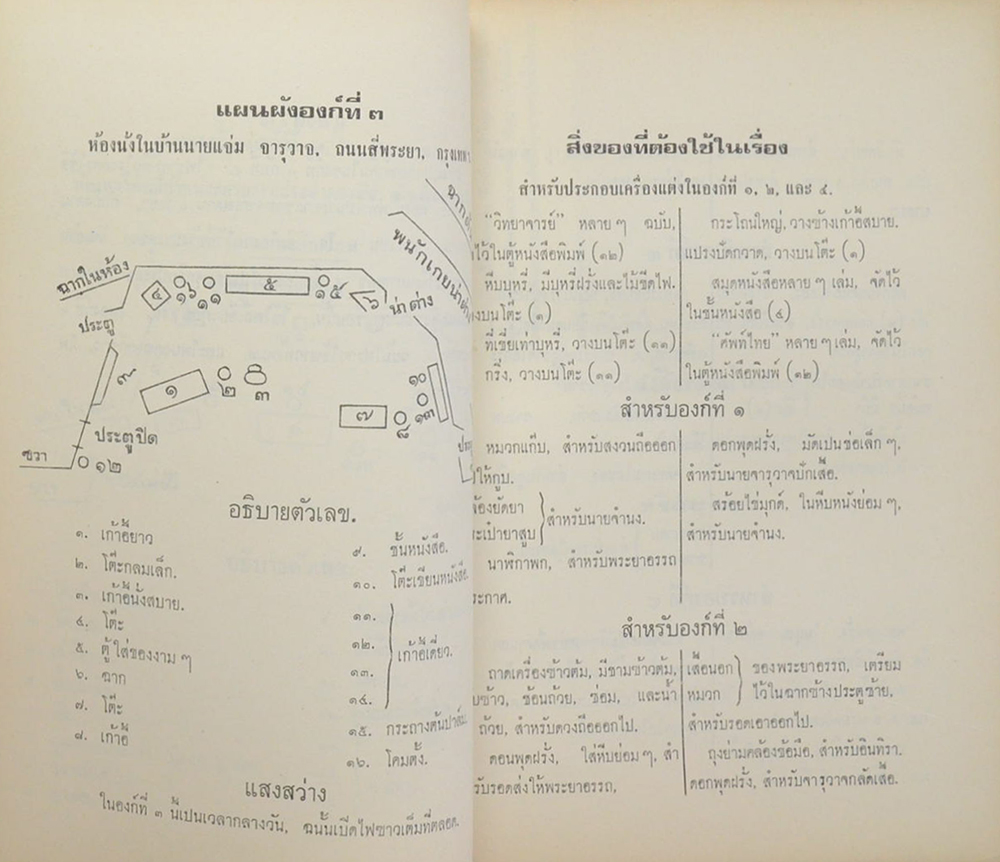 แผนผังองก์ที่ ๓
ห้องนั่งในบ้านนายแจ่ม จารุวาจ. ถนนสี่พระยา, กรุงเทพฯ
ฉากใน
พนักเกยน่า
ฉากในห้อง
๔
๑๖
๑๑
๕
๑๕
๖
น่าต่าง
ประตู
๙
๑
๒
๓
๗
๘
๑๐
๑๓
ประตูปิด
ซวา
๑๒
อธิบายตัวเลข.
๑. เก้าอี้ยาว
๒. โต๊ะกลมเล็ก.
๓. เก้าอี้นั่งสบาย.
๔. โต๊ะ
๕. ตู้ใส่ของงาม ๆ
๖. ฉาก
๗. โต๊ะ
๘. เก้าอี้
๙. ชั้นหนังสือ.
๑๐. โต๊ะเขียนหนังสือ
๑๑.
๑๒. เก้าอี้เดี่ยว.
๑๓.
๑๔.
๑๕. กระถางต้นปาล์ม
๑๖. โคมตั้ง.
แสงสว่าง
ในองก์ที่ ๓ นี้เปนเวลากลางวัน, ฉนั้นเปิดไฟขาวเต็มที่ตลอด.
สิ่งของที่ต้องใช้ในเรื่อง
สำหรับประกอบเครื่องแต่งในองก์ที่ ๑, ๒, และ ๔.
“วิทยาจารย์” หลาย ๆ ฉบับ,
ไว้ในตู้หนังสือพิมพ์ (๑๒)
หีบบุหรี่, มีบุหรี่ฝรั่งและไม้ขีดไฟ.
งบนโต๊ะ (๑)
ที่เขี่ยเท่าบุหรี่, วางบนโต๊ะ (๑๑)
กริ่ง, วางบนโต๊ะ (๑๑)
กระโถนใหญ่, วางข้างเก้าอี้สบาย.
แปรงปัดกวาด, วางบนโต๊ะ (๑)
สมุดหนังสือหลาย ๆ เล่ม, จัดไว้
ในชั้นหนังสือ (๔)
“ศัพท์ไทย” หลาย ๆ เล่ม, จัดไว้
ในตู้หนังสือพิมพ์ (๑๒)
สำหรับองก์ที่ ๑
หมวกแก๊บ, สำหรับสงวนถือออก
ให้กูบ.
ล้องยัดยา
ะเป๋ายาสูบ สำหรับนายจำนง.
นาฬิกาพก, สำหรับพระยาอรรถ
ระกาศ.
ดอกพุดฝรั่ง, มัดเปนช่อเล็ก ๆ,
สำหรับนายจารุวาจปักเสื้อ.
สร้อยไข่มุกด์, ในหีบหนังย่อม ๆ,
สำหรับนายจำนง.
สำหรับองก์ที่ ๒
ถาดเครื่องข้าวต้ม, มีชามข้าวต้ม,
บข้าว, ช้อนถ้วย, ซ่อม, และน้ำ
ถ้วย, สำหรับดวงถือออกไป.
ดอนพุดฝรั่ง, ใส่หีบย่อม ๆ, สำ
รับรอดส่งให้พระยาอรรถ,
เสื้อนอก ของพระยาอรรถ, เตรียม
หมวก ไว้ในฉากข้างประตูซ้าย,
สำหรับรอดเอาออกไป.
ถุงย่ามคล้องข้อมือ, สำหรับอินทิรา.
ดอกพุดฝรั่ง, สำหรับจารุวาจกลัดเสื้อ.